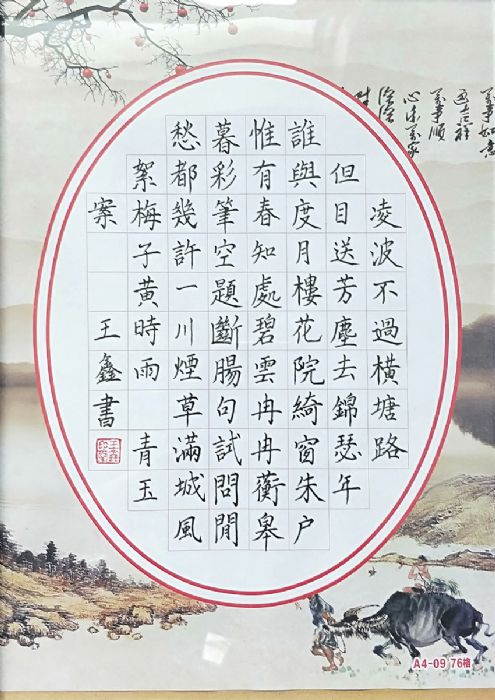 凌波不過橫塘路
但目送芳塵去錦瑟年
誰與度月樓花院綺窗朱户
惟有春知處碧雲冉冉蘅皋
暮彩筆空題斷腸句試問閒
愁都幾許一川煙草滿城風
絮梅子黃時雨 青玉
案 王鑫書
A4-09 76格